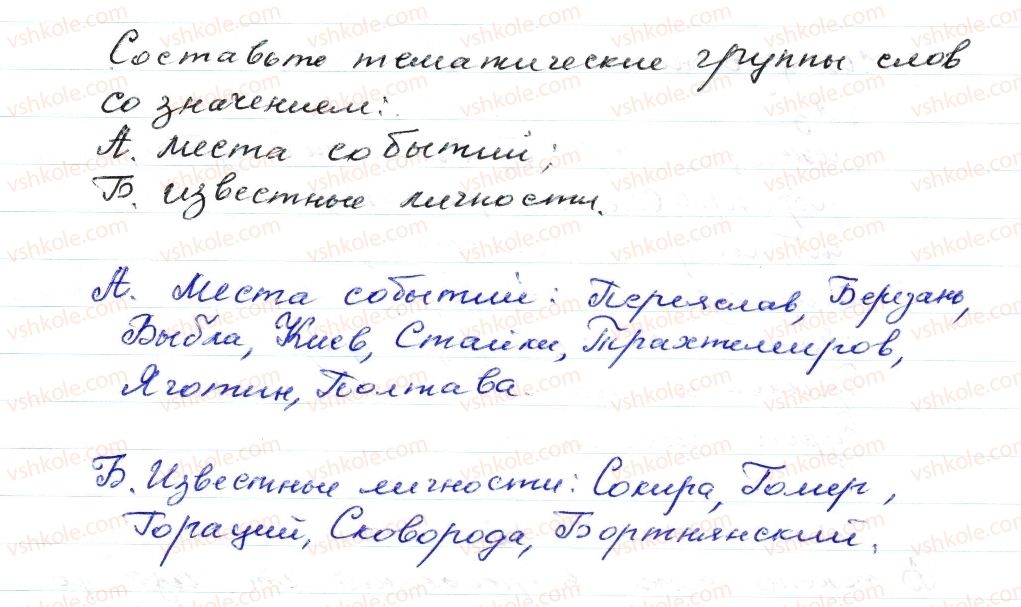 Составьте тематические группы слов
со значением:
А. места событий;
Б. известные личности.
А. Места событий: Переяслав, Березань,
Выбла, Киев, Стайки, Трахтемиров,
Яготин, Полтава.
Б. Известные личности: Сокира, Гомер,
Гораций, Сковорода, Бортнянский.